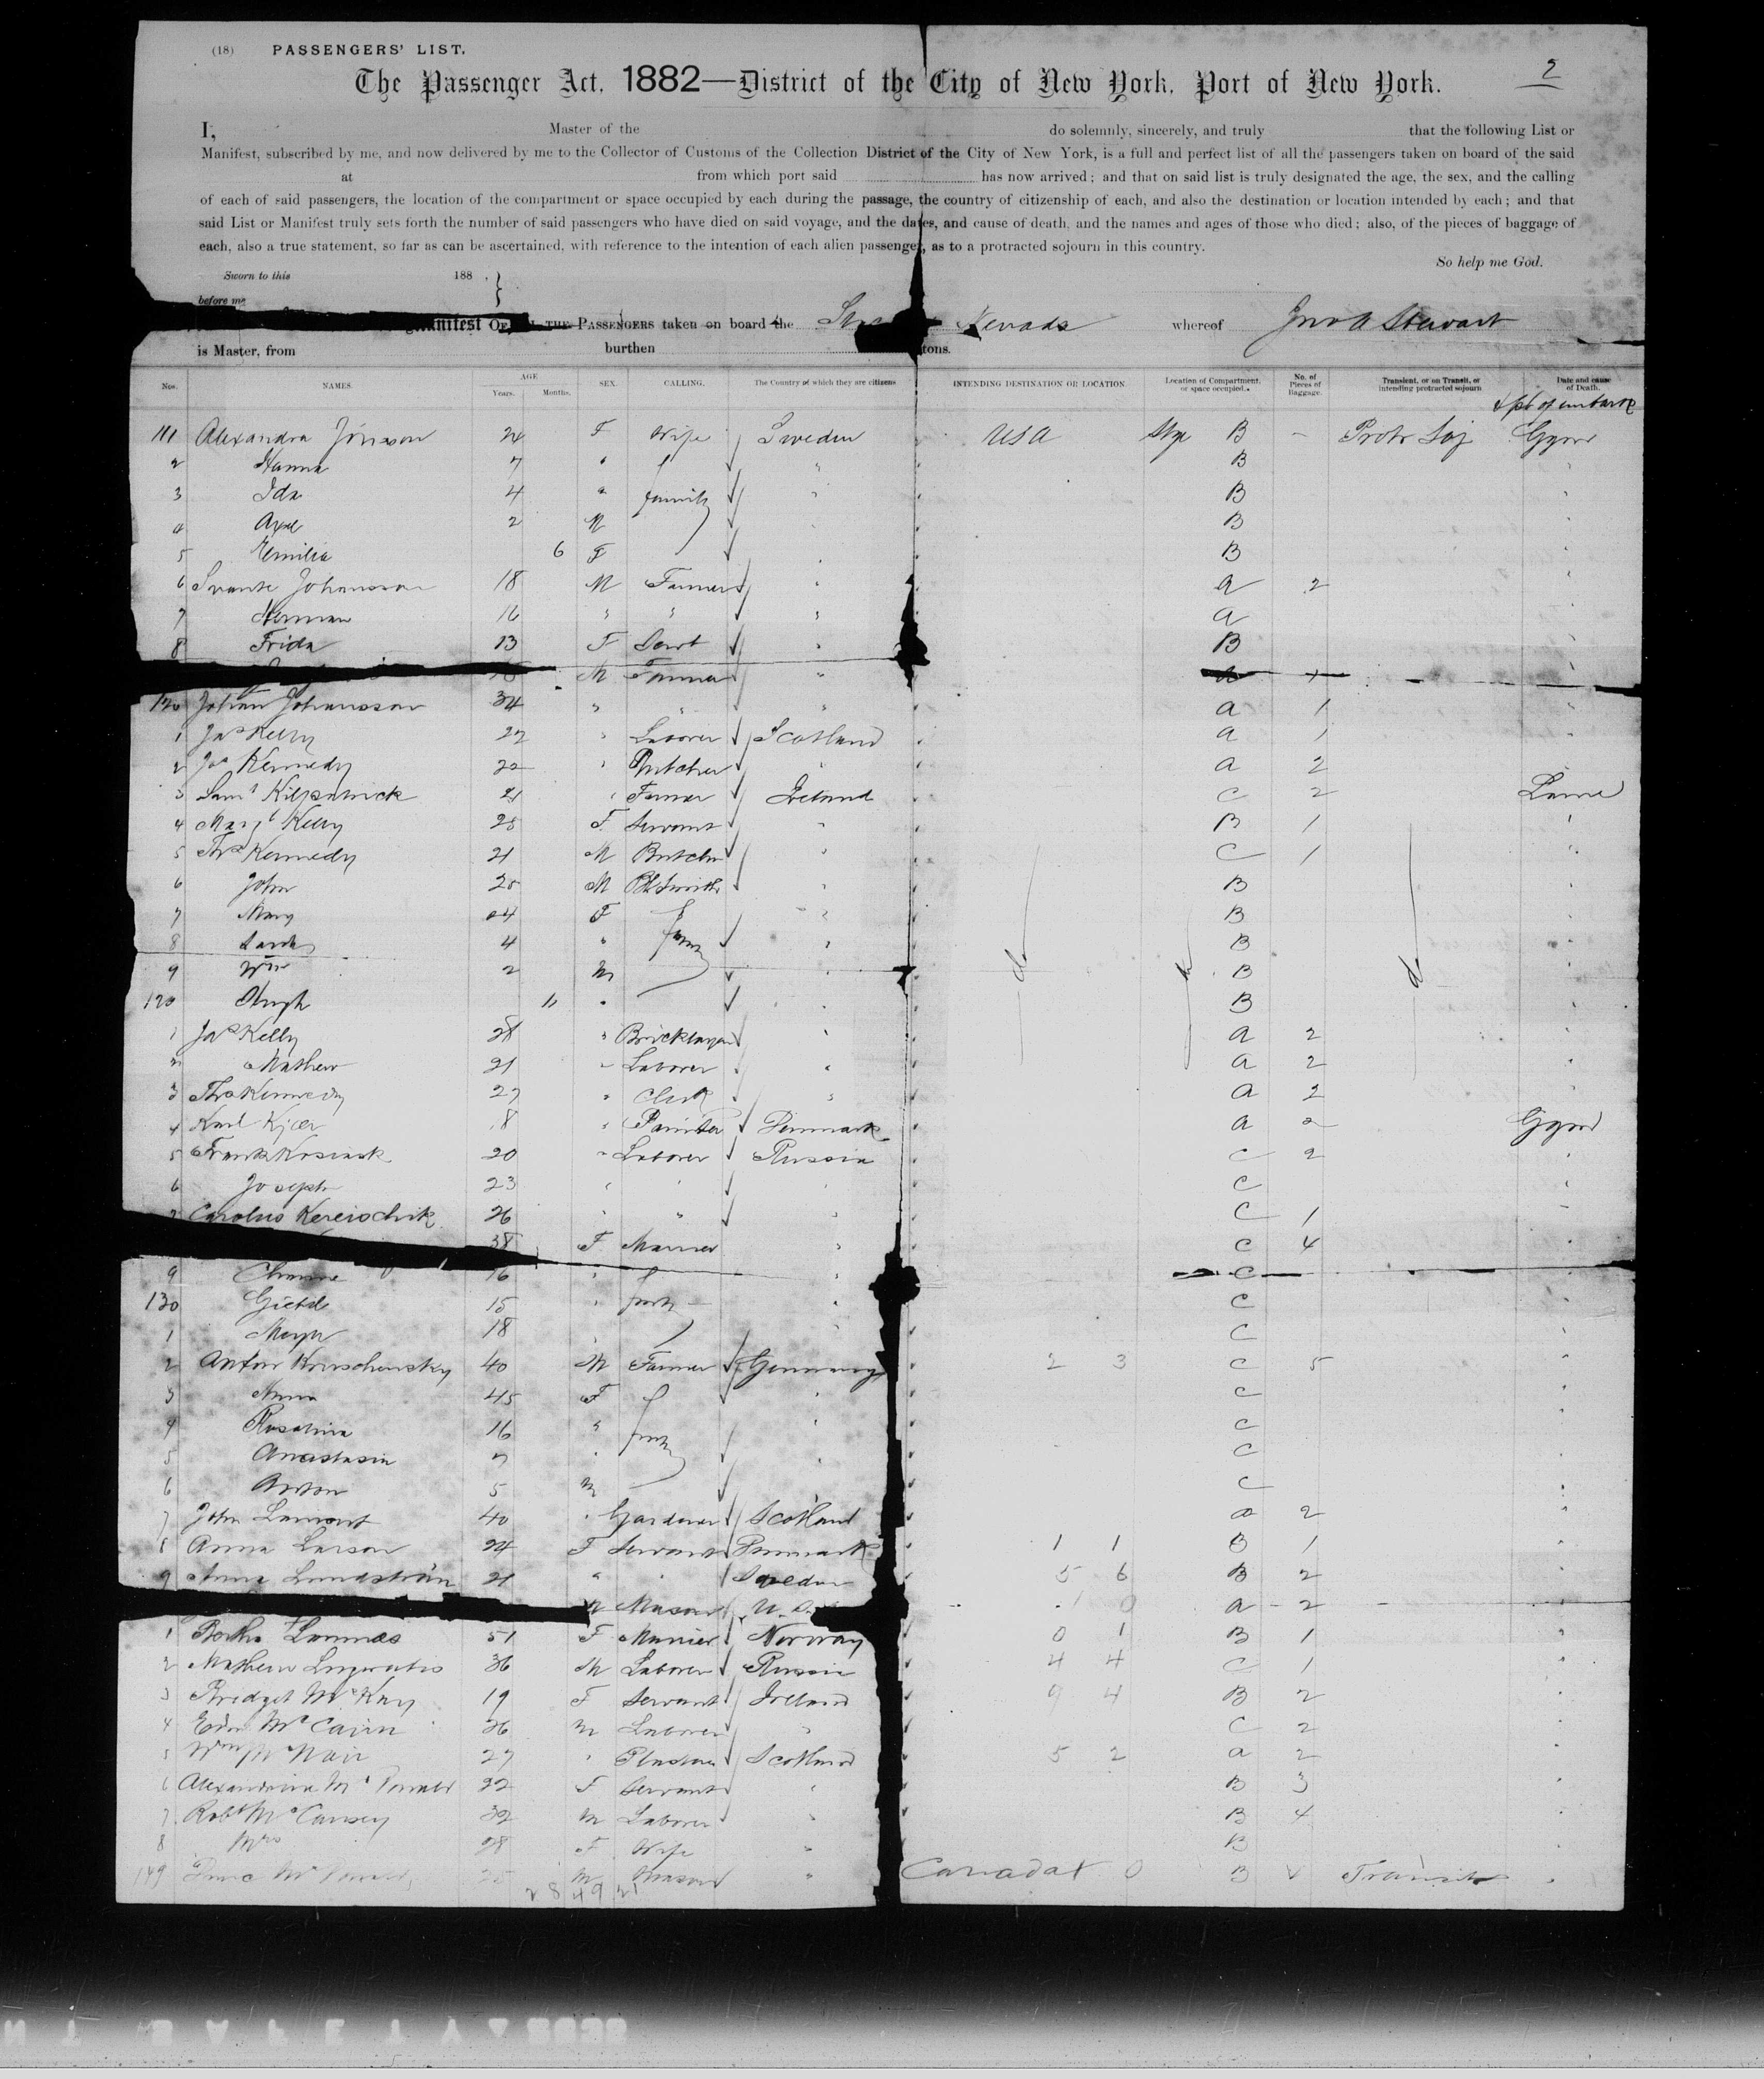 (18) PASSENGERS' LIST.
2
The Passenger Act, 1882—District of the City of New York, Port of New York.
I, Master of the do solemnly, sincerely, and truly that the following List or
Manifest, subscribed by me, and now delivered by me to the Collector of Customs of the Collection District of the City of New York, is a full and perfect list of all the passengers taken on board of the said
at from which port said has now arrived; and that on said list is truly designated the age, the sex, and the calling
of each of said passengers, the location of the compartment or space occupied by each during the passage, the country of citizenship of each, and also the destination or location intended by each; and that
said List or Manifest truly sets forth the number of said passengers who have died on said voyage, and the dates, and cause of death, and the names and ages of those who died; also, of the pieces of baggage of
each, also a true statement, so far as can be ascertained, with reference to the intention of each alien passenger, as to a protracted sojourn in this country.
So help me God.
Sworn to this 188 .
before me
Manifest OF THE PASSENGERS taken on board the Nevada whereof Jno A Stewart
is Master, from burthen tons.
Nos. NAMES. AGE Years. Months. SEX. CALLING. The Country of which they are citizens INTENDING DESTINATION OR LOCATION Location of Compartment, or space occupied. No. of Pieces of Baggage. Transient, or on Transit, or intending protracted sojourn Date and cause of Death.
& pt of embark
111 Alexandra Jönsson 24 F Wife Sweden USA Stge B - Protr Soj Ggow
2 Hanna 7 " " B
3 Ida 4 " family " B
4 Axel 2 M B
5 Emilia 6 F B
6 Svante Johansson 18 M Farmer " a 2
7 Herman 16 " " " a
8 Frida 13 F Servt " B
M Farmer "
120 Johan Johansson 34 " " " a 1
1 Jas Kelly 27 " Laborer Scotland a 1
2 Jos Kennedy 22 " Butcher " a 2
3 Saml Kilpatrick 21 " Farmer Ireland C 2 Larne
4 Margt Kelly 25 F Servant " B 1
5 Thos Kennedy 21 M Butcher " C 1
6 John 25 M Blksmith " B
7 Mary 24 F " B
8 Sarah 4 " family " B
9 Wm 2 M " B
120 Hugh 11 " " B
1 Jas Kelly 28 " Bricklayer " a 2
2 Mathew 21 " Laborer " a 2
3 Thos Kennedy 27 " Clerk " a 2
4 Karl Kjaer 18 " Painter Denmark a 2 Ggow
5 Frank Kosiask 20 " Laborer Russia C 2
6 Joseph 23 " " " C
7 Carolus Kereischik 26 " " " C 1
38 F Married " C 4
9 16 " " C
130 15 " " C
1 18 " C
2 Anton 40 M Farmer Germany 2 3 C 5
3 Anna 45 F " C
4 Rosalina 16 " family " C
5 Anastasia 7 " " C
6 Anton 5 M C
7 John Lamont 40 " Gardener Scotland a 2
8 Anna Larson 24 F Servant Denmark 1 1 B 1
9 Anna Lundström 21 " " Sweden 5 6 B 2
Mason U.S. 0 a 2
1 Bertha 51 F Married Norway 0 1 B 1
2 Mathew 36 M Laborer Russia 4 4 C 1
3 Bridget McKay 19 F Servant Ireland 9 4 B 2
4 Edw McCann 26 M Laborer " C 2
5 Wm McNair 27 " Plasterer Scotland 5 2 a 2
6 Alexandrina McDonald 22 F Servant " B 3
7 Robt 32 M Laborer " B 4
8 Mrs 28 F Wife " B
149 McDonald 25 M Mason " Canada 0 B Transit "